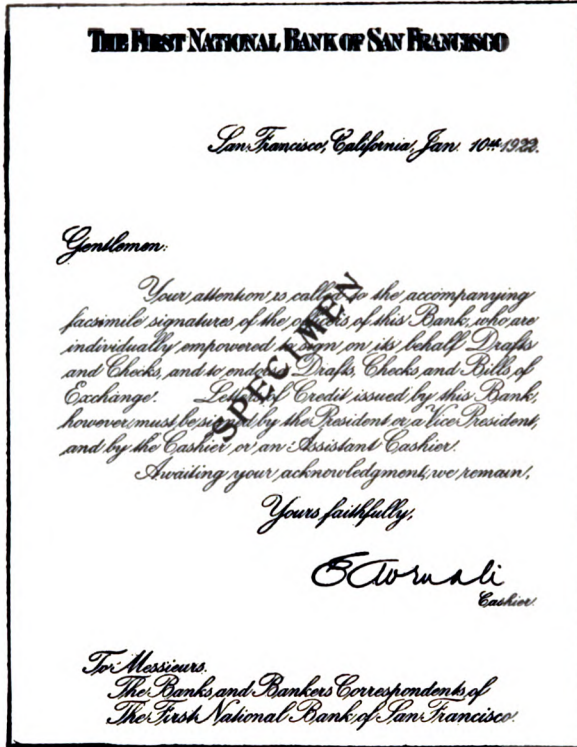 THE FIRST NATIONAL BANK OF SAN FRANCISCO
San Francisco, California, Jan. 10th 1922.
Gentlemen:
Your attention is called to the accompanying
facsimile signatures of the officers of this Bank, who are
individually empowered to sign on its behalf Drafts
and Checks, and to endorse Drafts, Checks and Bills of
Exchange. Letters of Credit issued by this Bank,
however must be signed by the President or a Vice President,
and by the Cashier or an Assistant Cashier.
Awaiting your acknowledgment, we remain,
Yours faithfully,
Cashier.
To Messieurs.
The Banks and Bankers Correspondents of
The First National Bank of San Francisco.
SPECIMEN